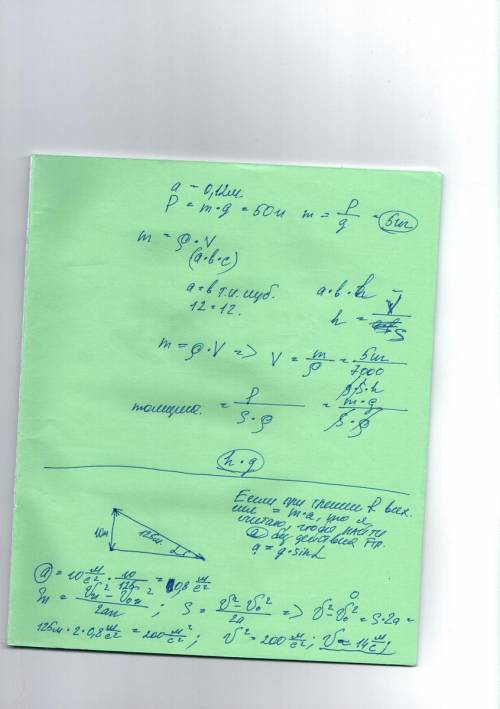 a = 0,12м.
P = m·g = 50н m = P/g = 5кг
m = ρ·V
(a·b·c)
a=b т.к. куб. a·b·h
12=12. h = V/S
m = ρ·V => V = m/ρ = 5кг/7000
толщина. = P/(S·ρ) = m·g/(S·ρ)
h·g
Если при трении F всех
сил = m·a, то я
считаю, чтобы найти
a без действия Fтр.
a = g·sinα
10м 125м. α
a = 10 м/с² · 10/125 = 0,8 м/с²
S = (V² - V₀²)/2a => V² - V₀² = S·2a =
125м·2·0,8 м/с² = 200 м²/с²; V² = 200 м/с²; V ≈ 14 м/с